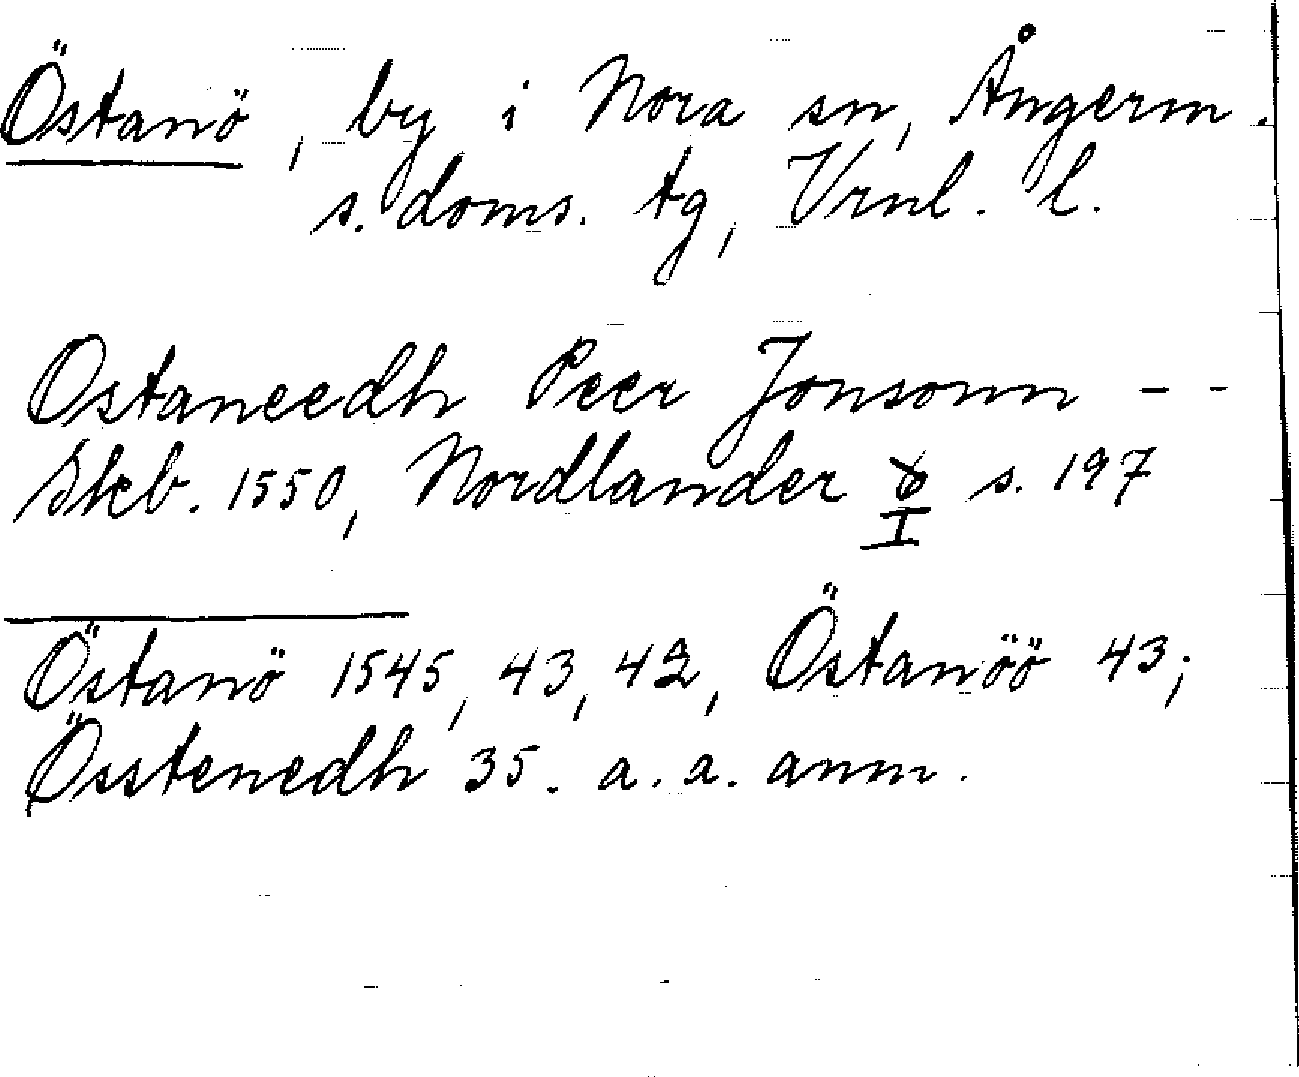 Östanö, by i Nora sn, Ångerm.
s. doms. tg, Vrnl. l.
Ostaneedh Peer Jonsonn - -
Skb. 1550, Nordlander I s. 197
Östanö 1545, 43, 42, Östanöö 43;
Össtenedh 35. a. a. anm.